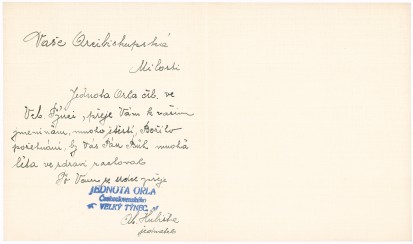 Vaše Arcibiskupská
Milosti
Jednota Orla čsl. ve
Vel. Týnci, přeje Vám k vašim
jmeninám, mnoho štěstí, Božího
požehnání, by Vás Pán Bůh mnohá
léta ve zdraví zachoval
To Vám ze srdce přeje
JEDNOTA ORLA
Československého
VELKÝ TÝNEC.
jednatel